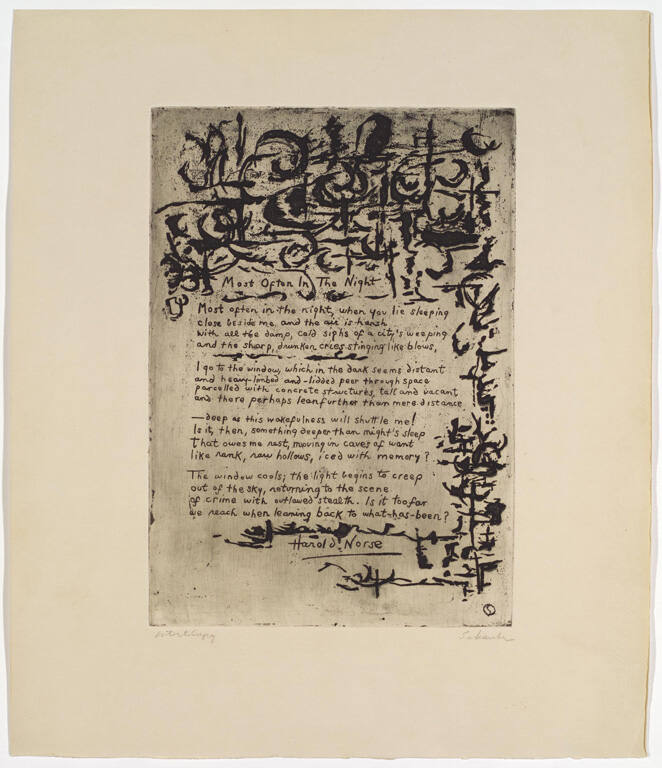 Most Often In The Night
Most often in the night, when you lie sleeping
close beside me, and the air is harsh
with all the damp, cold sighs of a city's weeping
and the sharp, drunken cries stinging like blows,
I go to the window, which in the dark seems distant
and heavy-limbed and-lidded peer through space
parcelled with concrete structures, tall and vacant
and there perhaps lean further than mere distance
—deep as this wakefulness will shuttle me!
Is it, then, something deeper than night's sleep
that owes me rest, moving in caves of want
like rank, raw hollows, iced with memory?
The window cools; the light begins to creep
out of the sky, returning to the scene
of crime with outlawed stealth. Is it too far
we reach when leaning back to what-has-been?
Harold Norse